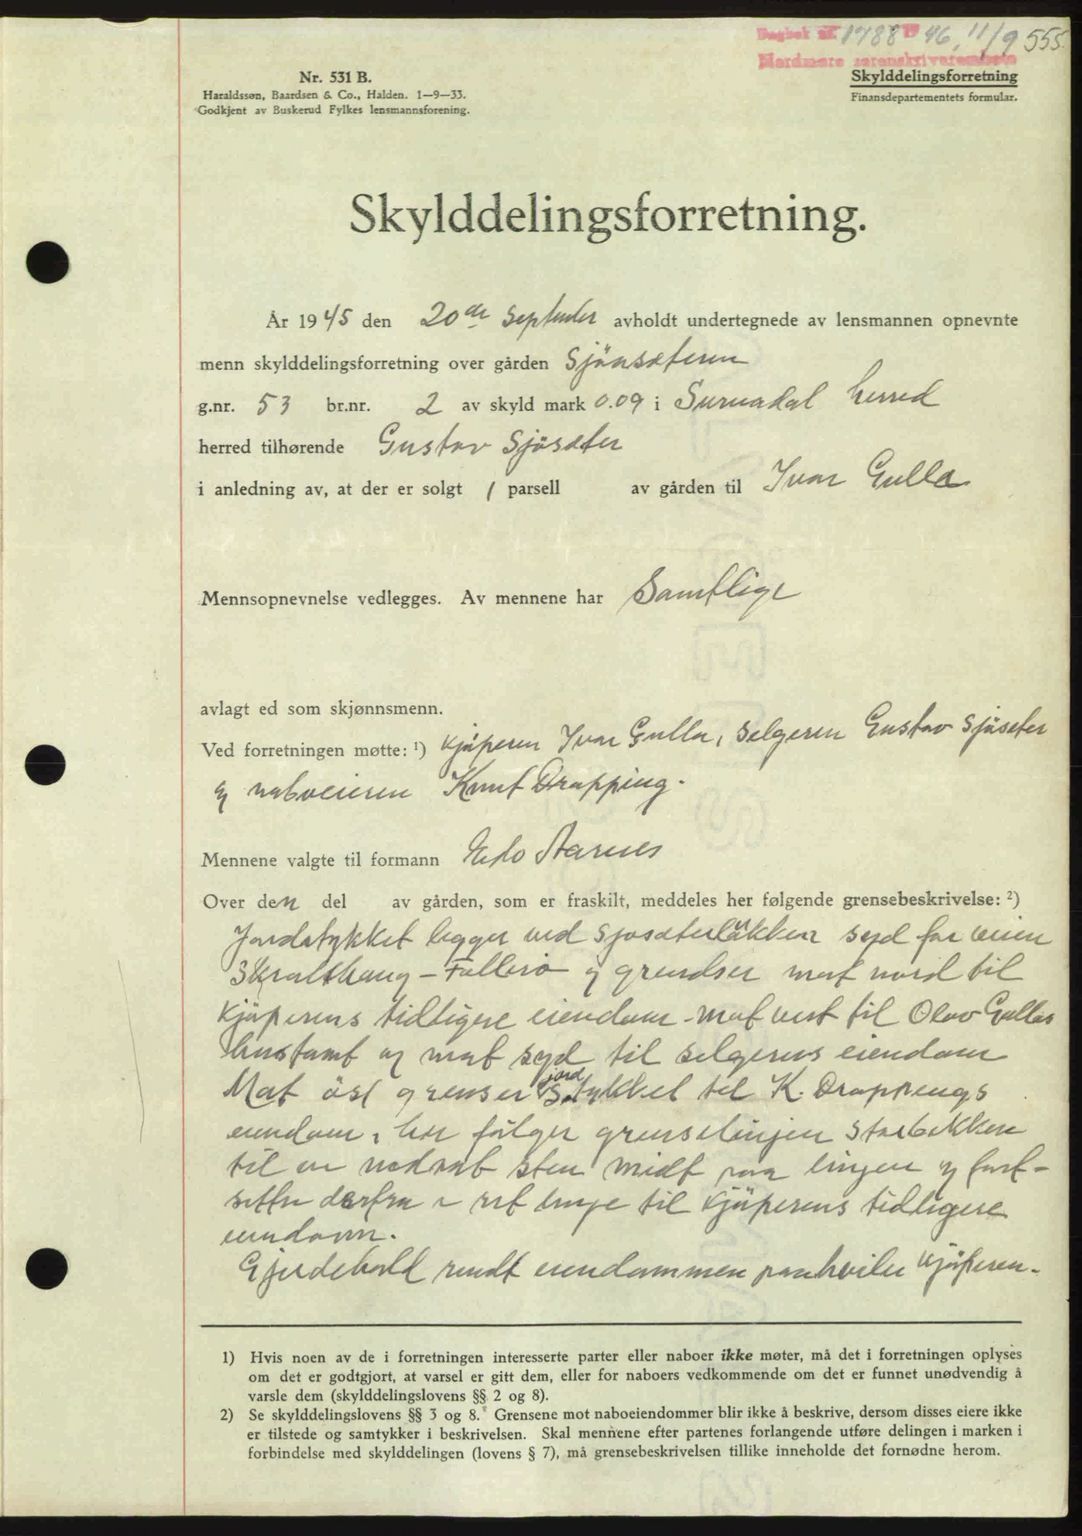 Dagbok nr. 1788 19 46, 11/9 555.
Nordmøre sorenskriverembete
Nr. 531 B.
Haraldssøn, Baardsen & Co., Halden. 1—9—33.
Godkjent av Buskerud Fylkes lensmannsforening.
Skylddelingsforretning
Finansdepartementets formular.
Skylddelingsforretning.
År 1945 den 20de September avholdt undertegnede av lensmannen opnevnte
menn skylddelingsforretning over gården Sjösæteren
g.nr. 53 br.nr. 2 av skyld mark 0.09 i Surnadal herred
herred tilhørende Gustav Sjösæter
i anledning av, at der er solgt 1 parsell av gården til Ivar Gulla
Mennsopnevnelse vedlegges. Av mennene har Samtlige
avlagt ed som skjønnsmenn.
Ved forretningen møtte: ¹) Kjöperen Ivar Gulla, Selgeren Gustav Sjöseter
og naboeieren Knut Drøpping.
Mennene valgte til formann Aarnes
Over den del av gården, som er fraskilt, meddeles her følgende grensebeskrivelse: ²)
Jordstykket ligger ved Sjosæterläkken syd for veien
Skralthaug - Fallerö og grendser mot nord til
Kjöperens tidligere eiendom - mot vest til Olav Gullas
og mot syd til selgerens eiendom
Mot öst grenser jordstykket til K. Drøppings
eiendom, her fölger grenselinjen Storbekken
til en nedsat sten midt paa linjen og fort-
setter derfra i ret linje til Kjöperens tidligere
eiendom.
Gjerdehold rundt eiendommen paahviler Kjöperen.
1) Hvis noen av de i forretningen interesserte parter eller naboer ikke møter, må det i forretningen oplyses
om det er godtgjort, at varsel er gitt dem, eller for naboers vedkommende om det er funnet unødvendig å
varsle dem (skylddelingslovens §§ 2 og 8).
2) Se skylddelingslovens §§ 3 og 8. Grensene mot naboeiendommer blir ikke å beskrive, dersom disses eiere ikke
er tilstede og samtykker i beskrivelsen. Skal mennene efter partenes forlangende utføre delingen i marken i
forbindelse med skylddelingen (lovens § 7), må grensebeskrivelsen tillike inneholde det fornødne herom.